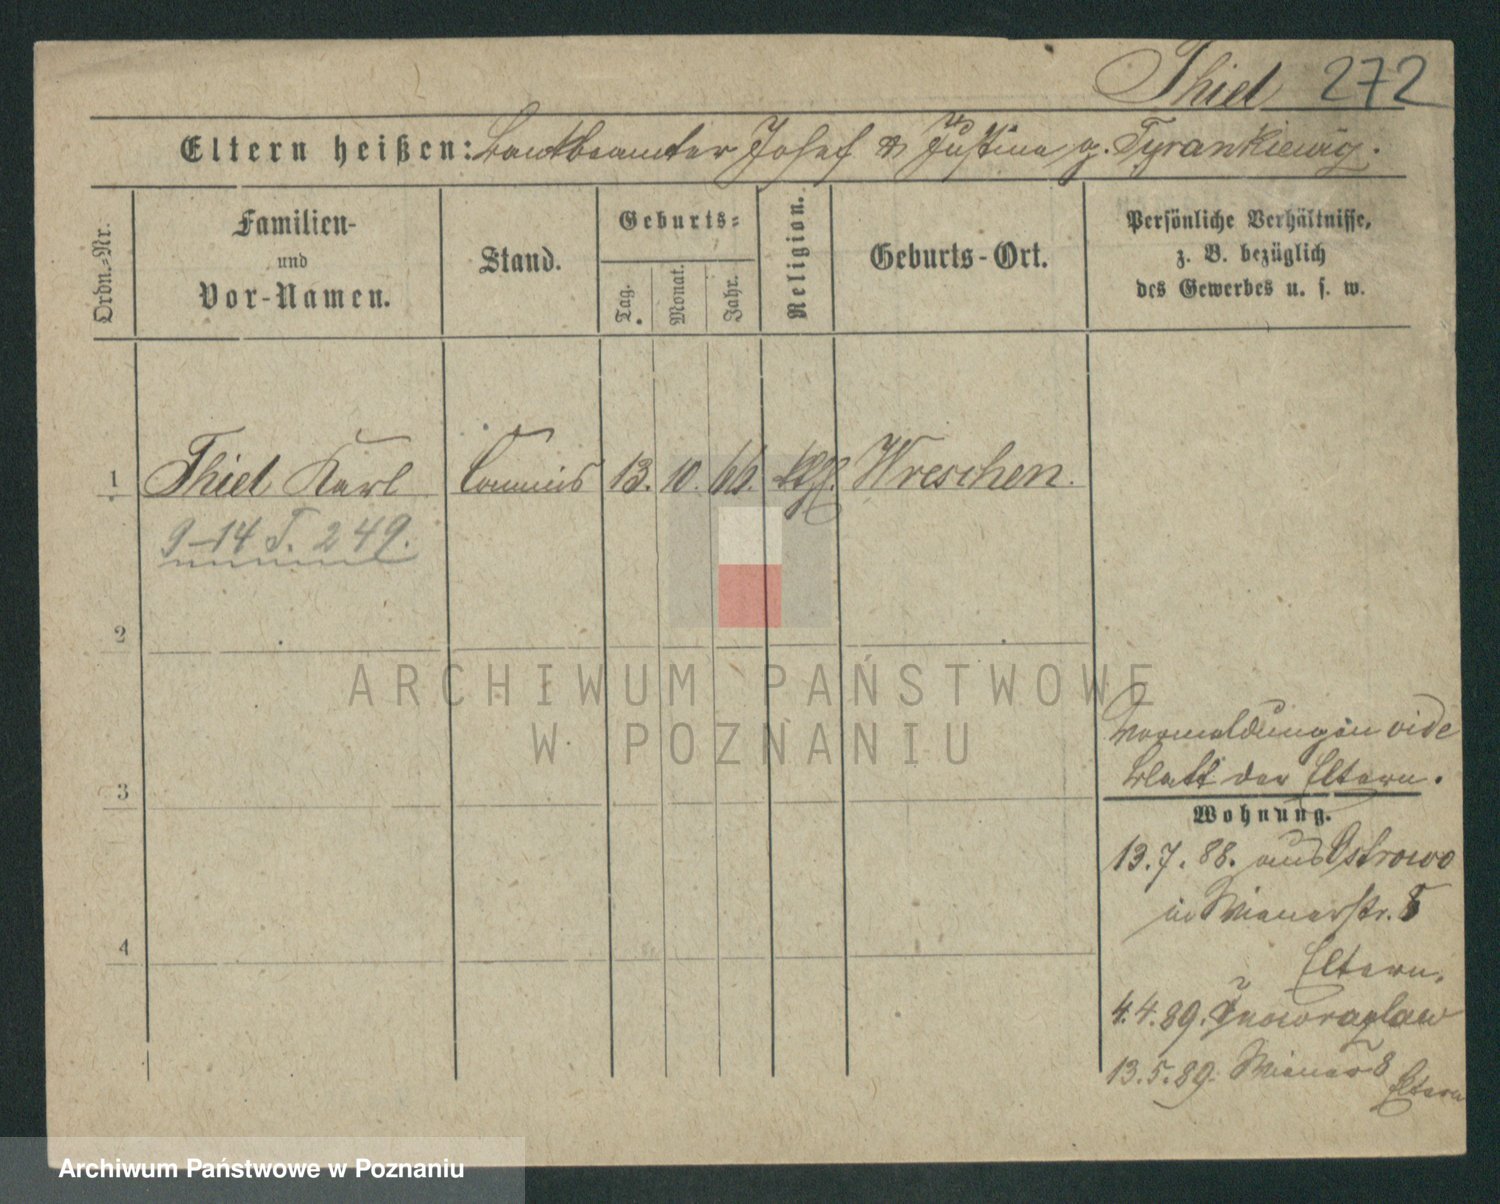 Thiel 272
Eltern heißen: Bankbeamter Josef & Justina g. Tyrankiewicz.
Ordn.-Nr.
Familien-
und
Vor-Namen.
Stand.
Geburts-
Tag.
Monat.
Jahr.
Religion.
Geburts-Ort.
Persönliche Verhältnisse,
z. B. bezüglich
des Gewerbes u. s. w.
1 Thiel Karl Commis 13. 10. 66. kath. Wreschen.
9-14 T. 249.
2
ARCHIWUM PAŃSTWOWE
W POZNANIU
Vormeldungen vide
Blatt der Eltern.
3
Wohnung.
13.7.88. aus Ostrowo
in Wienerstr. 8
4
Eltern.
4.4.89. Inowrazlaw
13.5.89. Wiener 8
Eltern
Archiwum Państwowe w Poznaniu